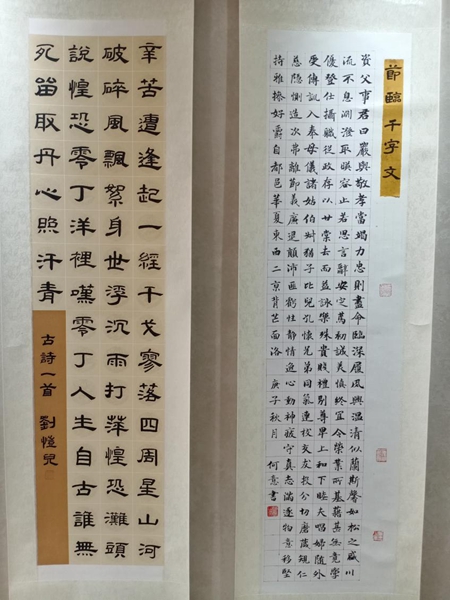 節臨千字文
資父事君曰嚴與敬孝當竭力忠則盡命臨深履風興溫清似蘭斯馨如松之盛川
流不息淵澄取暎容止若思言辭安定篤初誠美慎終宜令榮業所基藉甚無竟學
優登仕攝職從政存以甘棠去而益詠樂殊貴賤禮別尊卑上和下睦夫唱婦隨外
受傅訓入奉母儀諸姑伯叔猶子比兒孔懷兄弟同氣連枝交友投分切磨箴規仁
慈隱惻造次弗離節義廉退顛沛匪虧性靜情逸心動神疲守真志滿逐物意移堅
持雅操好爵自都邑華夏東西二京背芒面洛 庚子秋月 何意書
辛苦遭逢起一經干戈寥落四周星山河
破碎風飄絮身世浮沉雨打萍惶恐灘頭
說惶恐零丁洋裡嘆零丁人生自古誰無
死留取丹心照汗青
古詩一首 劉愷兒